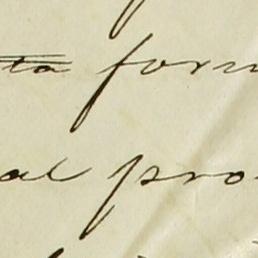 ta for
al pro